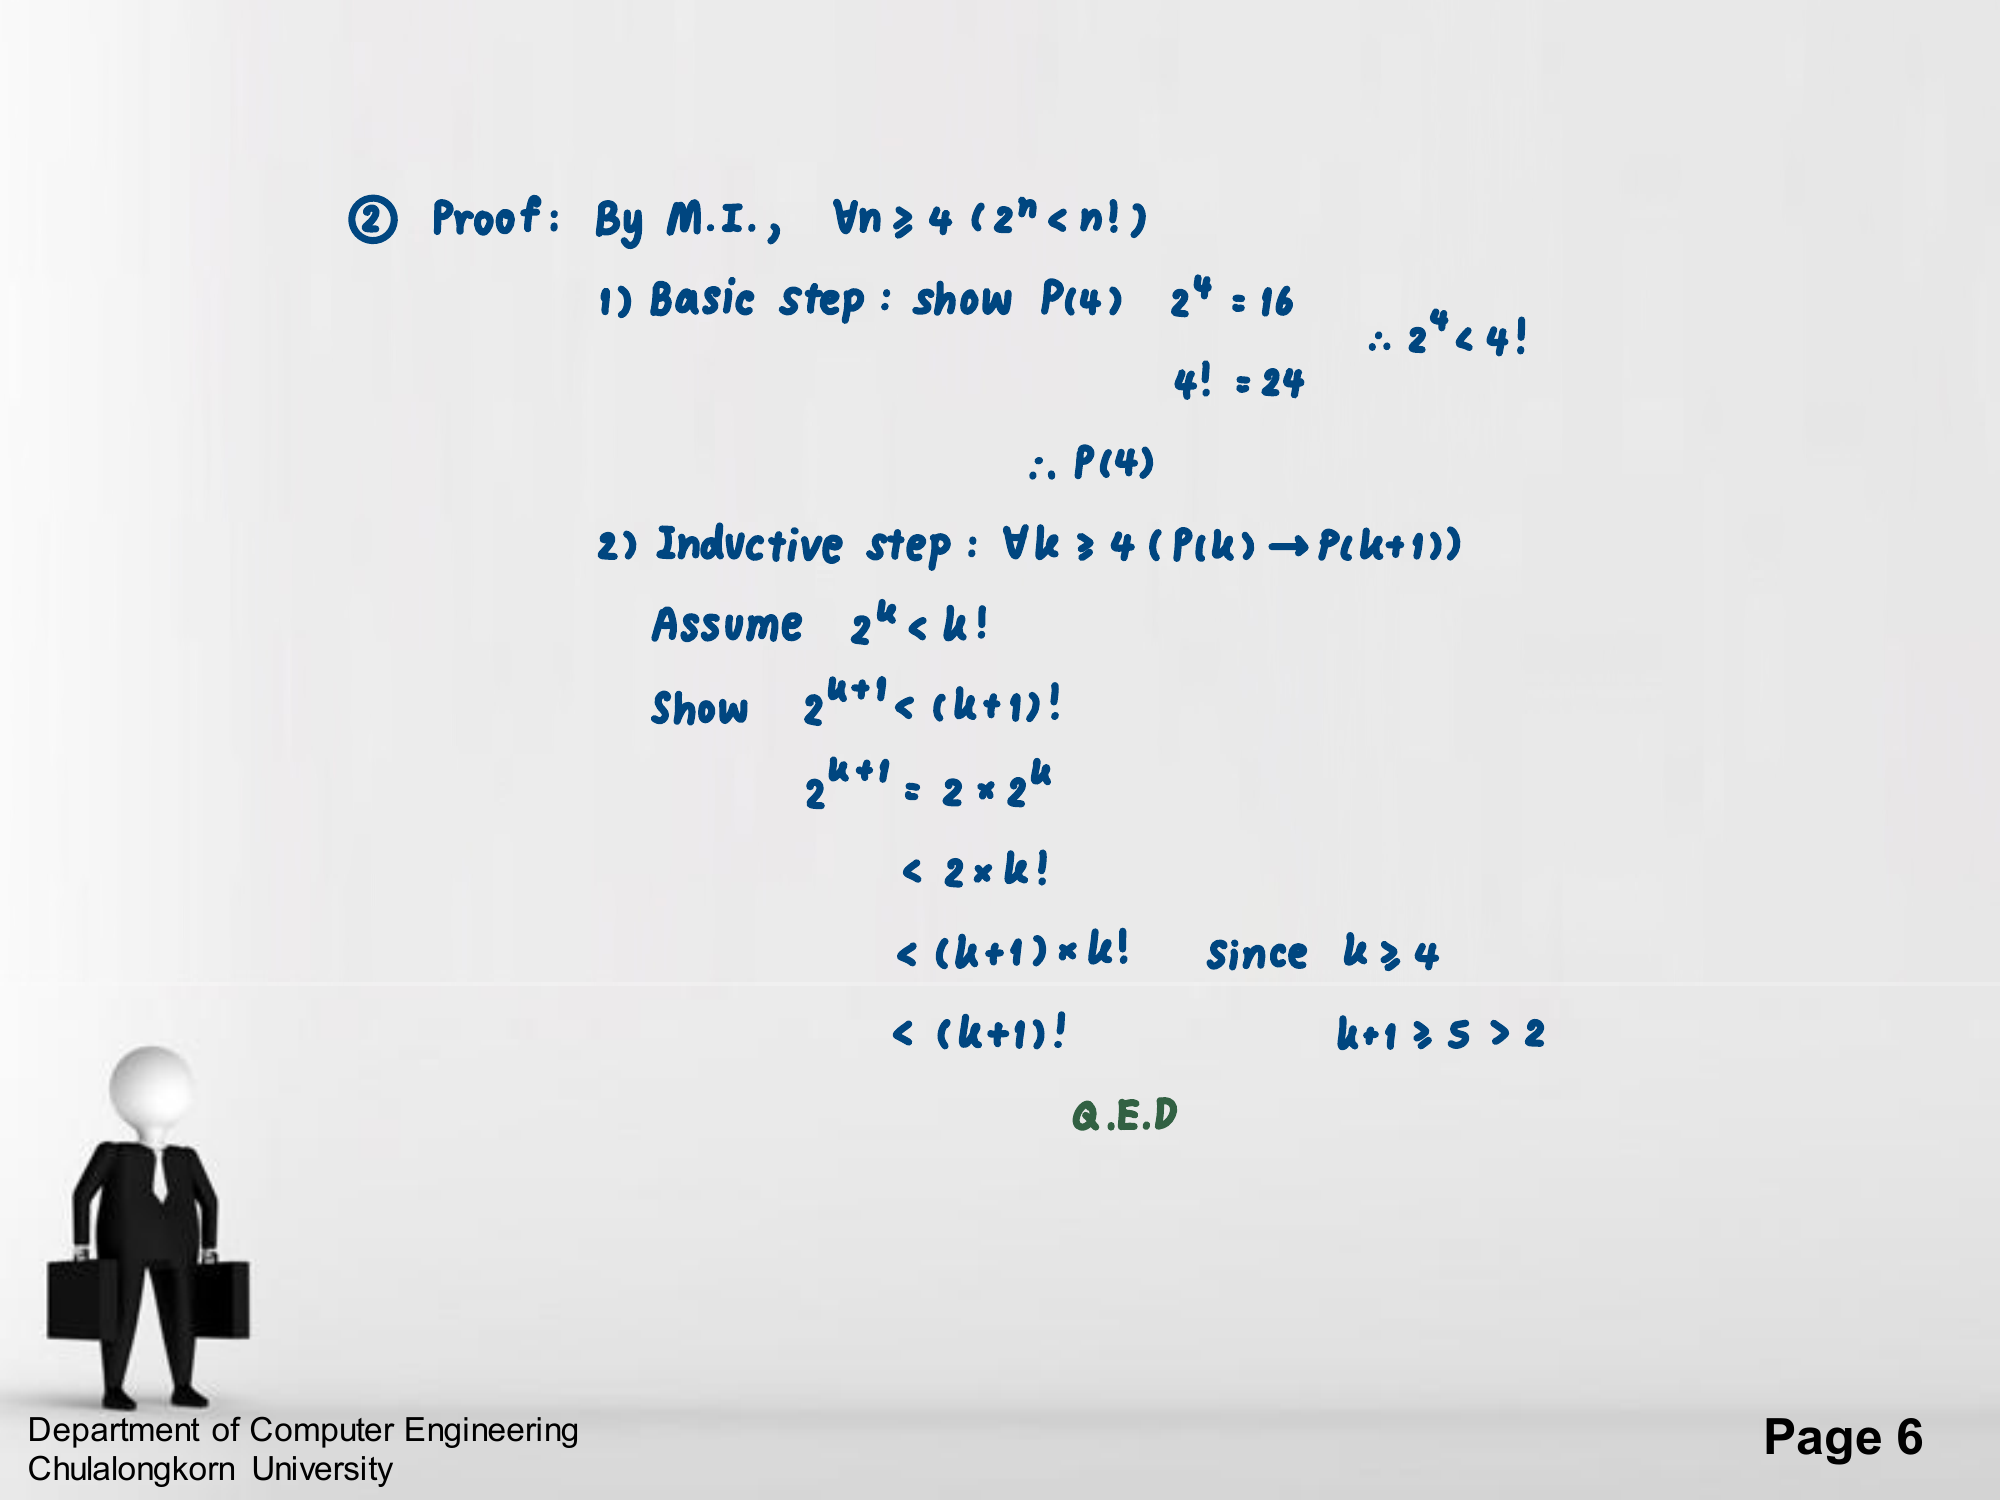 ② Proof: By M.I., ∀n ≥ 4 (2ⁿ < n!)
1) Basic step: show P(4) 2⁴ = 16
∴ 2⁴ < 4!
4! = 24
∴ P(4)
2) Inductive step: ∀k ≥ 4 (P(k) → P(k+1))
Assume 2ᵏ < k!
Show 2ᵏ⁺¹ < (k+1)!
2ᵏ⁺¹ = 2 × 2ᵏ
< 2 × k!
< (k+1) × k! since k ≥ 4
< (k+1)! k+1 ≥ 5 > 2
Q.E.D
Department of Computer Engineering
Chulalongkorn University
Page 6